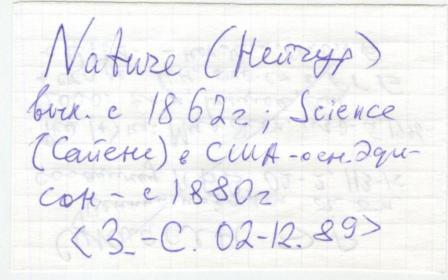 Nature (Нейчур)
вых. с 1862г; Science
(Сайенс) в США - осн. Эди-
сон - с 1880г
<З.-С. 02-12.89>